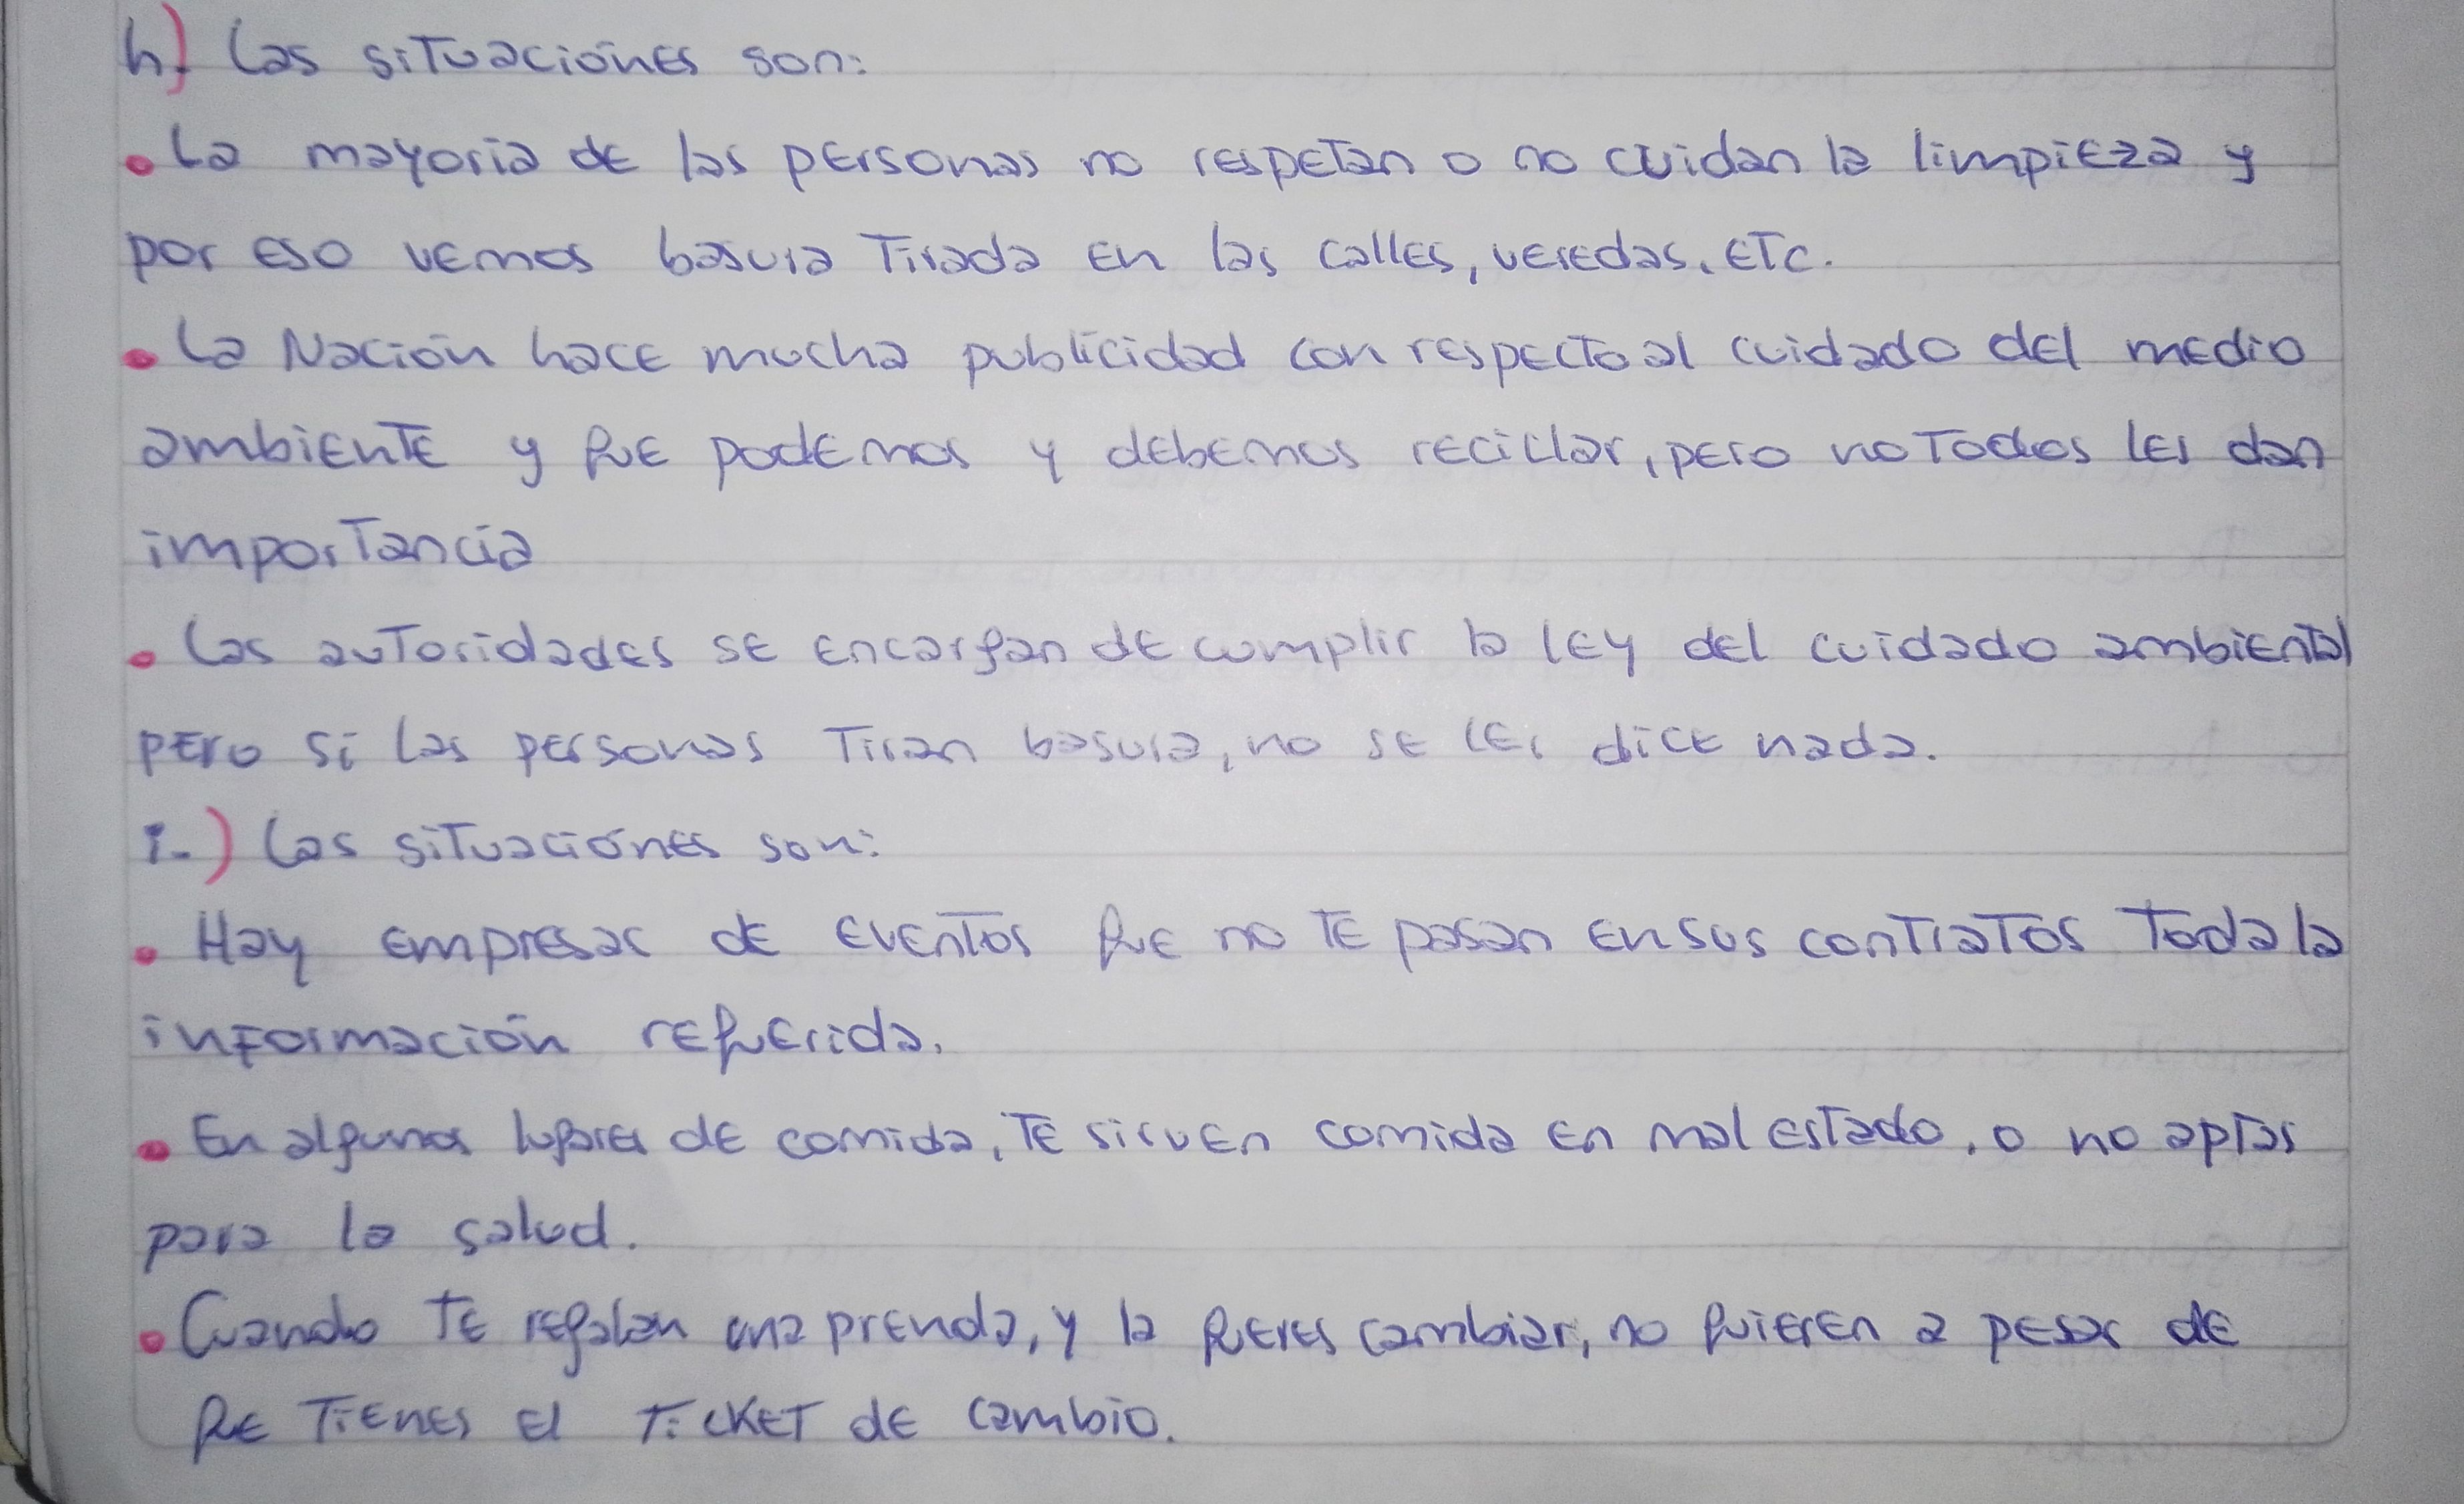 h) Las situaciónes son:
• La mayoria de las personas no respetan o no cuidan la limpieza y
por eso vemos basura Tirada en las calles, veredas, etc.
• La Nación hace mucha publicidad con respecto al cuidado del medio
ambiente y que podemos y debemos reciclar, pero no Todos les dan
importancia
• Las autoridades se encargan de cumplir la ley del cuidado ambiental
pero si las personas Tiran basura, no se les dice nada.
i-) Las situaciónes son:
• Hay empresas de eventos que no te pasan en sus contratos toda la
información requerida.
• En algunos lugares de comida, te sirven comida en mal estado, o no aptas
para la salud.
• Cuando te regalan una prenda, y la queres cambiar, no quieren a pesar de
que Tienes el Ticket de cambio.